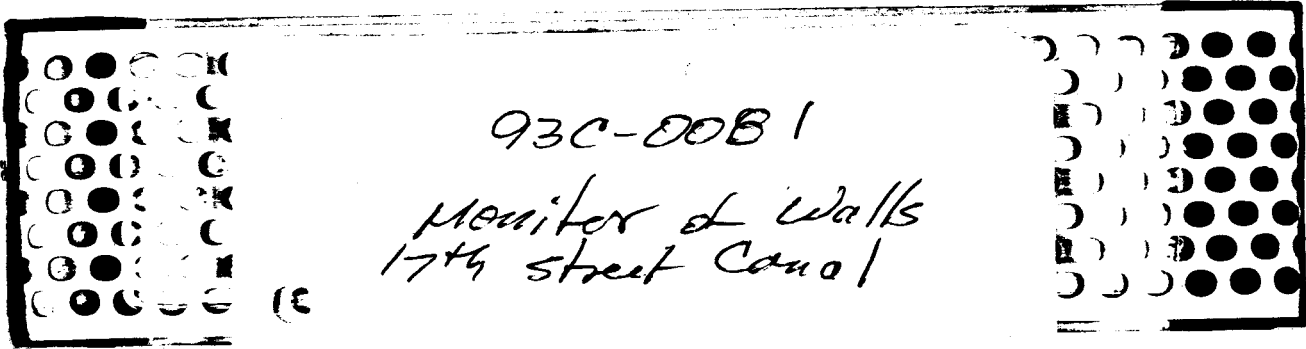 93C-0081
Monitor of Walls
17th Street Canal